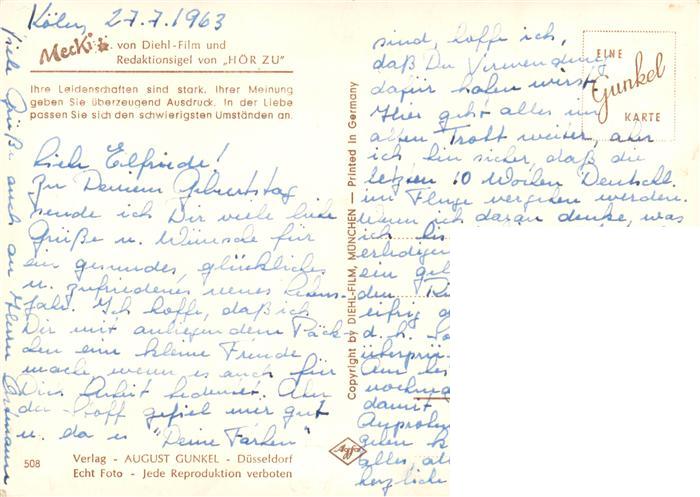 Köln, 27.7.1963
Mecki von Diehl-Film und
Redaktionsigel von „HÖR ZU"
Ihre Leidenschaften sind stark. Ihrer Meinung
geben Sie überzeugend Ausdruck. In der Liebe
passen Sie sich den schwierigsten Umständen an.
Liebe Elfriede!
Zu Deinem Geburtstag
sende ich Dir viele liebe
Grüße u. Wünsche für
ein gesundes, glückliches
u. zufriedenes neues Lebens-
jahr. Ich hoffe, daß ich
Dir mit anliegendem Päck-
chen eine kleine Freude
mache wenn es auch für
Dich Arbeit bedeutet. Aber
der Stoff gefiel mir gut
u. da u "Deine Farben"
508
Verlag - AUGUST GUNKEL - Düsseldorf
Echt Foto - Jede Reproduktion verboten
Viele Grüße auch an Herrn
Copyright by DIEHL-FILM, MÜNCHEN — Printed in Germany
Agfa
EINE
Gunkel
KARTE
sind, hoffe ich,
daß Du Verwendung
dafür haben wirst.
Hier geht alles im
alten Trott weiter, aber
ich bin sicher, daß die
letzten 10 Wochen Deutschl.
im Fluge vergehen werden.
Wenn ich daran denke, was
ich bis
erledigen
ein
den
eifrig
d. h.
überprü-
Am
nochma
damit
Anproben
guten
alles,
herzliche